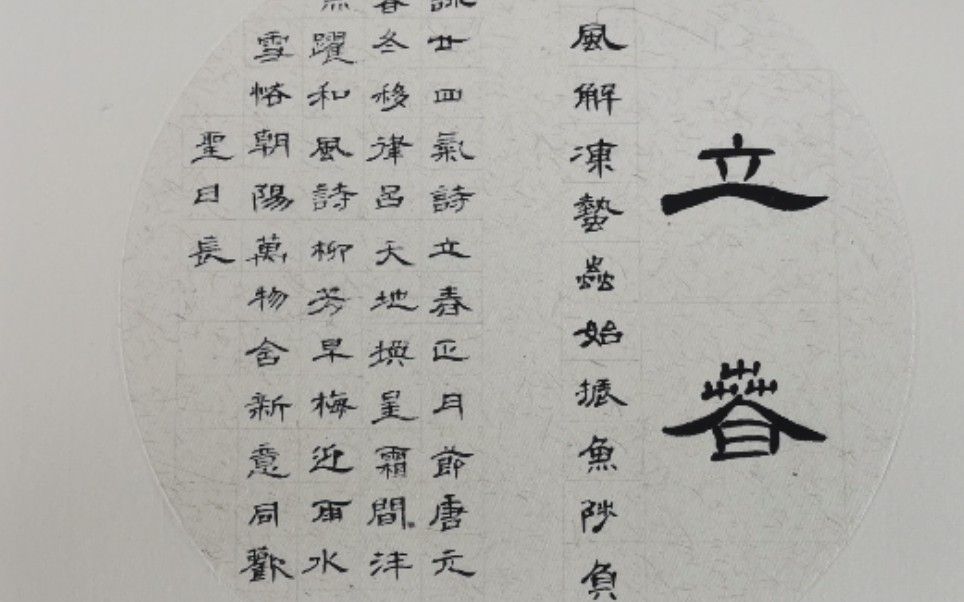 立春
風解凍蟄蟲始振魚陟負
詠廿四氣詩立春正月節唐元
春冬移律呂天地換星霜間泮
躍和風詩柳芳早梅迎雨水
雪怯朝陽萬物含新意同歡
聖日長